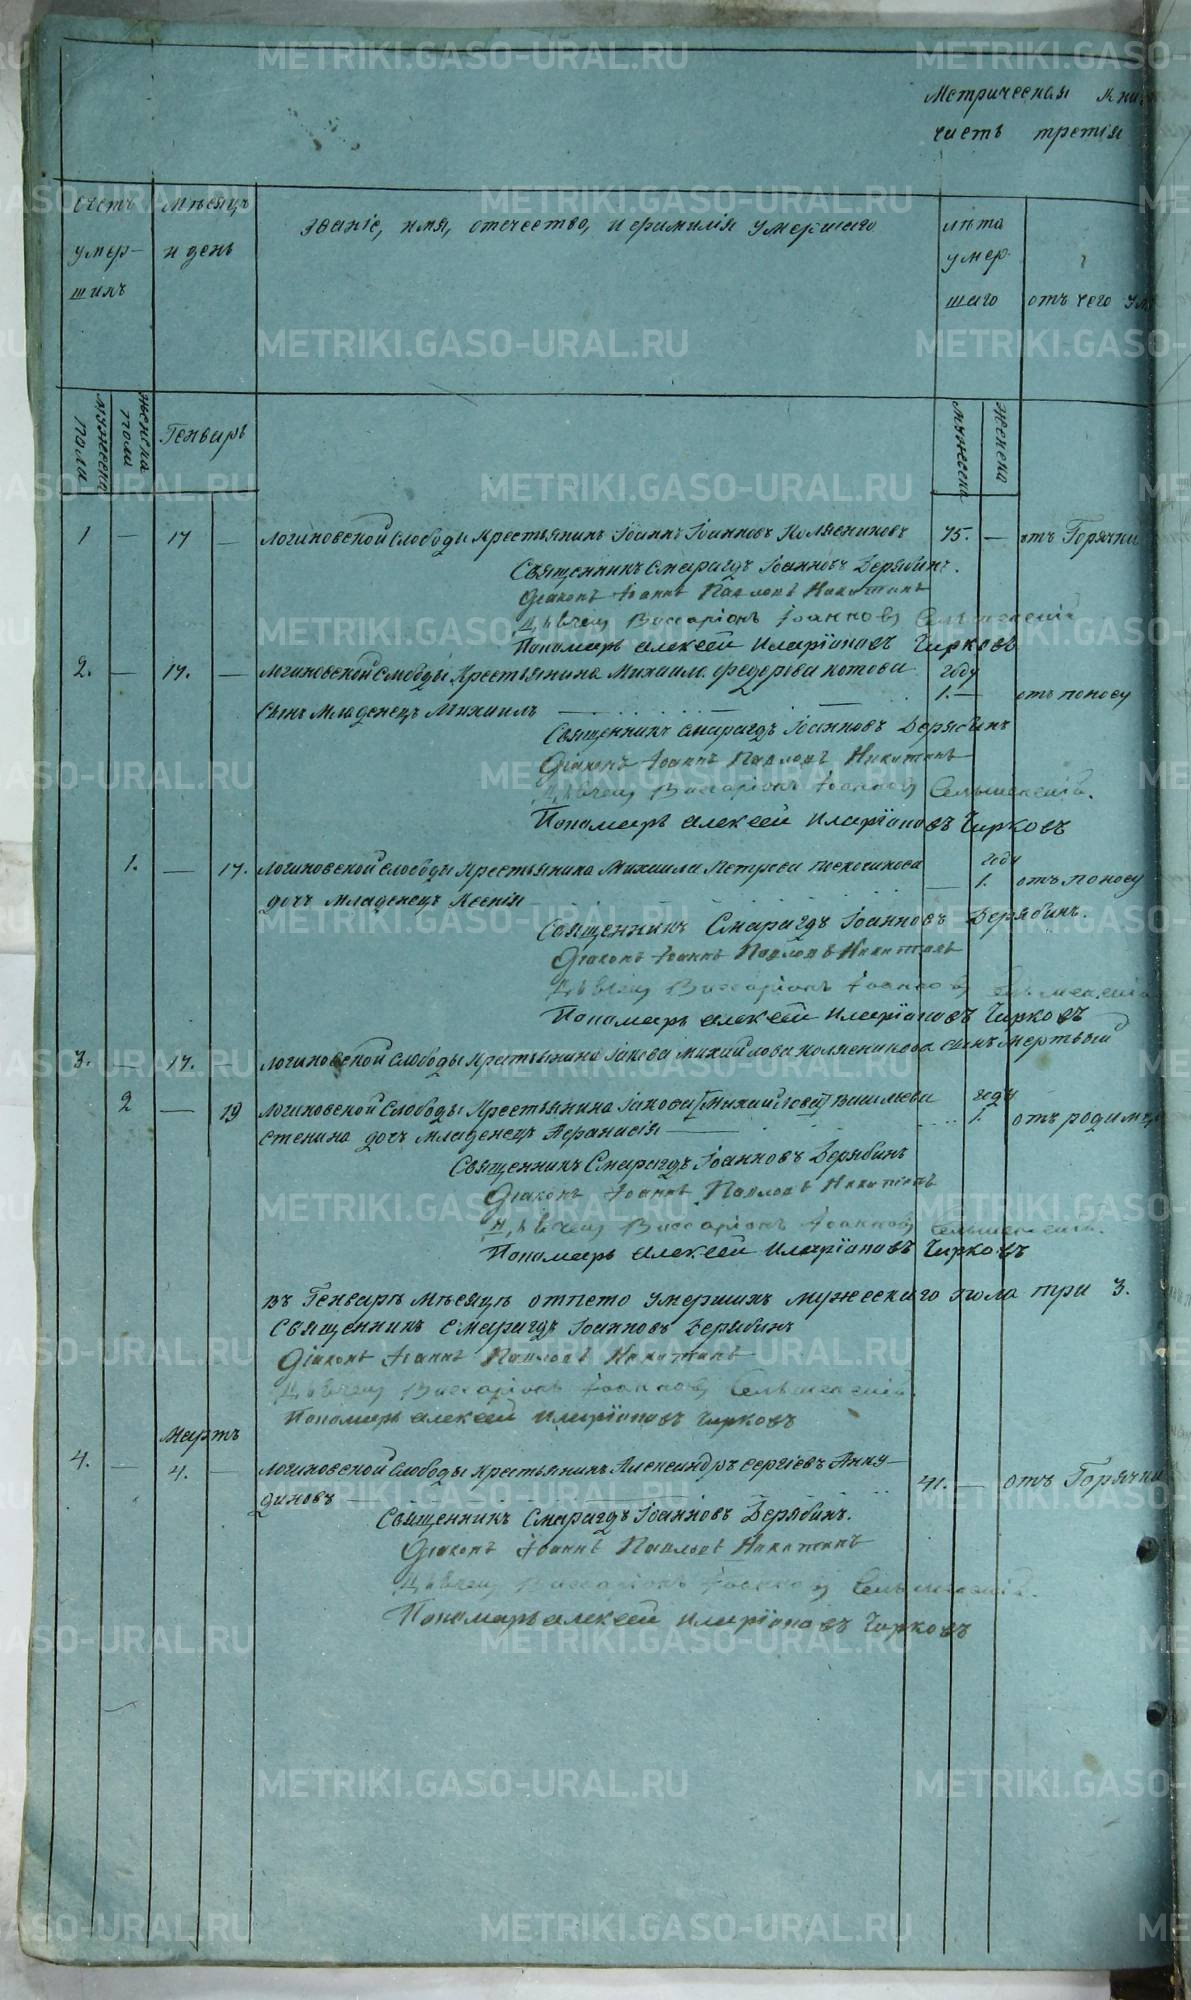 Метрическая книг
часть третія
Счетъ умер-шихъ
Мѣсяцъ и день
званіе, имя, отечество, и фамилія умершаго
лѣта умер-шаго
отъ чего ум
мужеска пола
женска пола
Генварь
мужеска
женска
1 — 17 — Логиновской слободы крестьянинъ Іоаннъ Іоанновъ Колясниковъ 75. — отъ Горячки
Священникъ Смарагдъ Іоанновъ Дерябинъ.
Діаконъ Іоаннъ Павловъ Никитинъ
Виссаріонъ Іоанновъ
Пономарь Алексѣй Иларіоновъ Чирковъ
2. — 17. — Логиновской слободы крестьянина Михаила Федорова Котова году
сынъ младенецъ Михаилъ 1. — отъ поносу
Священникъ Смарагдъ Іоанновъ Дерябинъ
Діаконъ Іоаннъ Павловъ Никитинъ
Виссаріонъ Іоанновъ
Пономарь Алексѣй Иларіоновъ Чирковъ
1. — 17. Логиновской слободы крестьянина Михаила Петрова году
дочь младенецъ Ксенія — 1. отъ поносу
Священникъ Смарагдъ Іоанновъ Дерябинъ.
Діаконъ Іоаннъ Павловъ Никитинъ
Виссаріонъ Іоанновъ
Пономарь Алексѣй Иларіоновъ Чирковъ
3. — 17. — Логиновской слободы крестьянина Іакова Михайлова Колясникова сынъ мертвый
2 — 19 Логиновской слободы крестьянина Іакова [Михайлова] Васильева году
Стенина дочь младенецъ Афанасія 1. отъ родимч
Священникъ Смарагдъ Іоанновъ Дерябинъ
Діаконъ Іоаннъ Павловъ Никитинъ
Виссаріонъ Іоанновъ
Пономарь Алексѣй Иларіоновъ Чирковъ
въ Генварѣ мѣсяцѣ отпето умершихъ мужескаго пола три 3.
Священникъ Смарагдъ Іоанновъ Дерябинъ
Діаконъ Іоаннъ Павловъ Никитинъ
Виссаріонъ Іоанновъ
Пономарь Алексѣй Иларіоновъ Чирковъ
Мартъ
4. — 4. — Логиновской слободы крестьянинъ Александръ Сергіевъ Анку-
диновъ 41. — отъ Горячки
Священникъ Смарагдъ Іоанновъ Дерябинъ.
Діаконъ Іоаннъ Павловъ Никитинъ
Виссаріонъ Іоанновъ
Пономарь Алексѣй Иларіоновъ Чирковъ
METRIKI.GASO-URAL.RU